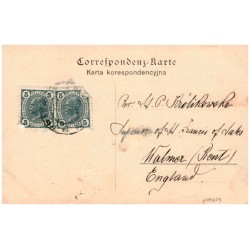 Correspondenz-Karte
Karta korespondencyjna
5 5
5 5
Królikowska
of St. Francis of Sales
Walmer (Kent)
England